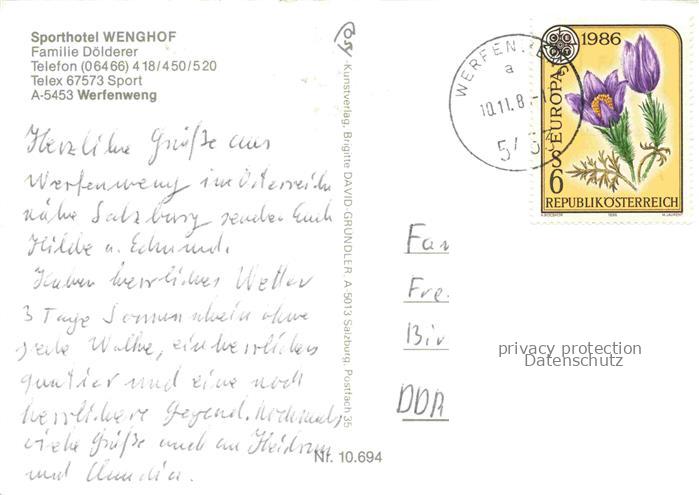 Sporthotel WENGHOF
Familie Dölderer
Telefon (06466) 418/450/520
Telex 67573 Sport
A-5453 Werfenweng
Herzliche Grüße aus
Werfenweng im Österreich
nähe Salzburg senden Euch
Hilde u. Edmund.
Haben herrliches Wetter
3 Tage Sonnenschein ohne
jede Wolke, ein herrliches
quatier und eine noch
herrlichere Gegend. Nochmals
viele Grüße auch an Heidrun
und Claudia.
Kunstverlag, Brigitte DAVID-GRÜNDLER A 5013 Salzburg, Postfach 35
Nr. 10.694
WERFEN
a
10.11.8
1986
EUROPA
S 6
REPUBLIK ÖSTERREICH
1986
Fam
Fre
Bir
DDR
privacy protection
Datenschutz